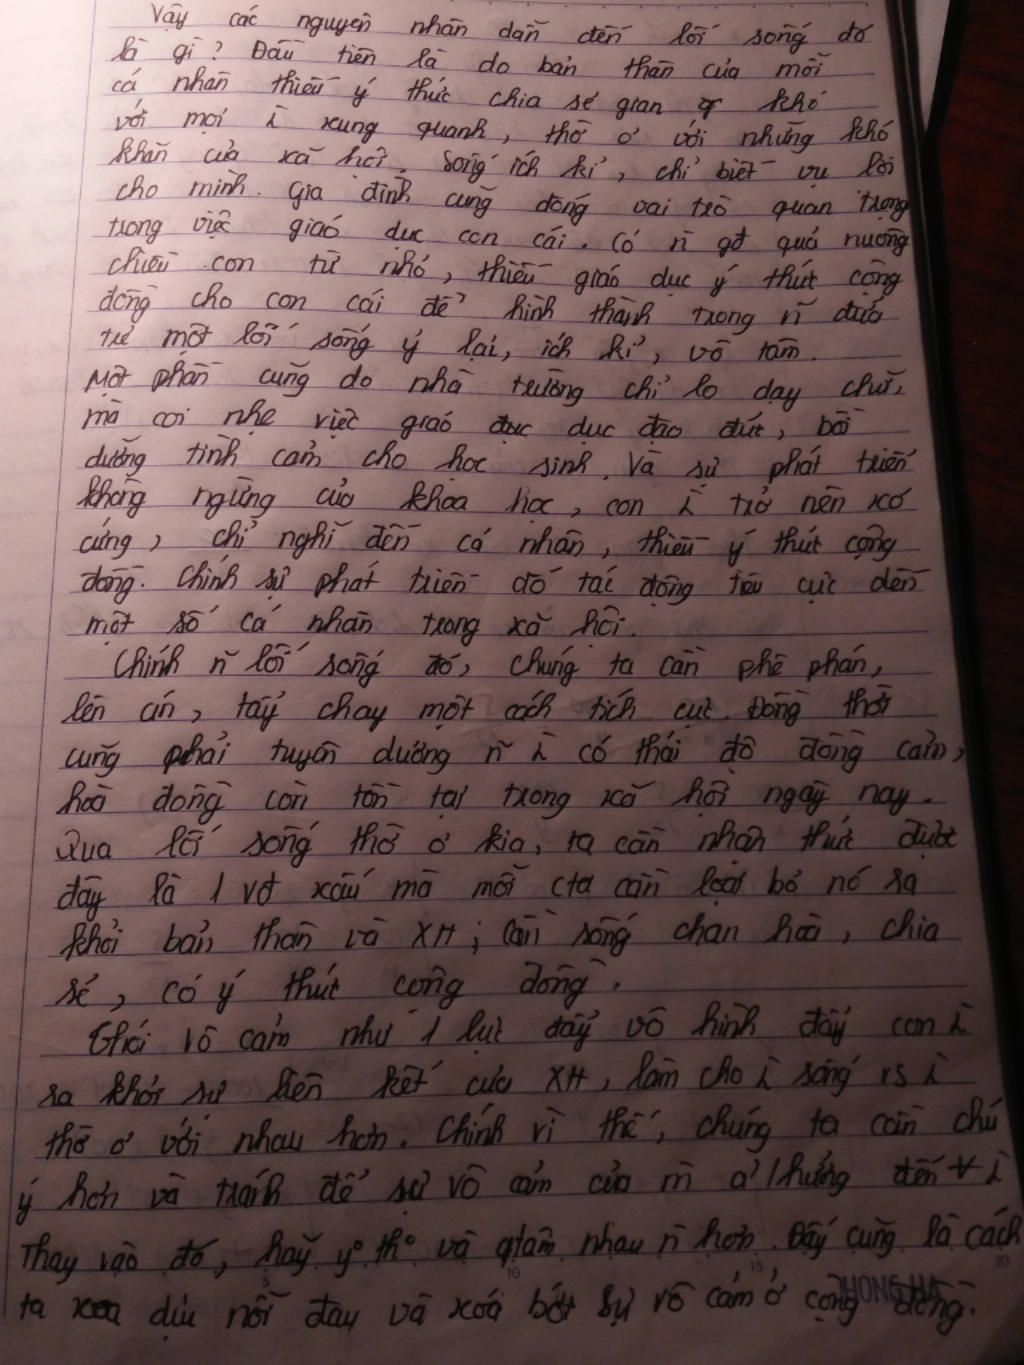 Vậy các nguyên nhân dẫn đến lối sống đó
là gì? Đầu tiên là do bản thân của mỗi
cá nhân thiếu ý thức chia sẻ gian khó
với mọi ì xung quanh, thờ ơ với những khó
khăn của xã hội, sống ích kỉ, chỉ biết vụ lợi
cho mình. Gia đình cũng đóng vai trò quan trọng
trong việc giáo dục con cái. Có n̄ gđ quá nuông
chiều con từ nhỏ, thiếu giáo dục ý thức cộng
đồng cho con cái để hình thành trong n̄ đứa
trẻ một lối sống ỷ lại, ích kỉ, vô tâm.
Một phần cũng do nhà trường chỉ lo dạy chữ,
mà coi nhẹ việc giáo dục đạo đức, bồi
dưỡng tình cảm cho học sinh. Và sự phát triển
không ngừng của khoa học, con ì trở nên xơ
cứng, chỉ nghĩ đến cá nhân, thiếu ý thức cộng
đồng. Chính sự phát triển đó tác động tiêu cực đến
một số cá nhân trong xã hội.
Chính n̄ lối sống đó, chúng ta cần phê phán,
lên án, tẩy chay một cách tích cực. Đồng thời
cũng phải tuyên dương n̄ ì có thái độ đồng cảm,
hoà đồng còn tồn tại trong xã hội ngày nay.
Qua lối sống thờ ơ kia, ta cần nhận thức được
đây là 1 vđ xấu mà mỗi cta cần loại bỏ nó ra
khỏi bản thân và XH; cần sống chan hoà, chia
sẻ, có ý thức cộng đồng.
Thói vô cảm như 1 lực đẩy vô hình đẩy con ì
ra khỏi sự liên kết của XH, làm cho ì sống vs ì
thờ ơ với nhau hơn. Chính vì thế, chúng ta cần chú
ý hơn và tránh để sự vô cảm của m̀ a'/hưởng đến ì
Thay vào đó, hãy y° th° và qtâm nhau n̄ hơn. Đấy cũng là cách
ta xoa dịu nỗi đau và xoá bớt sự vô cảm ở cộng đồng.
5 10 15 20
HONG HA